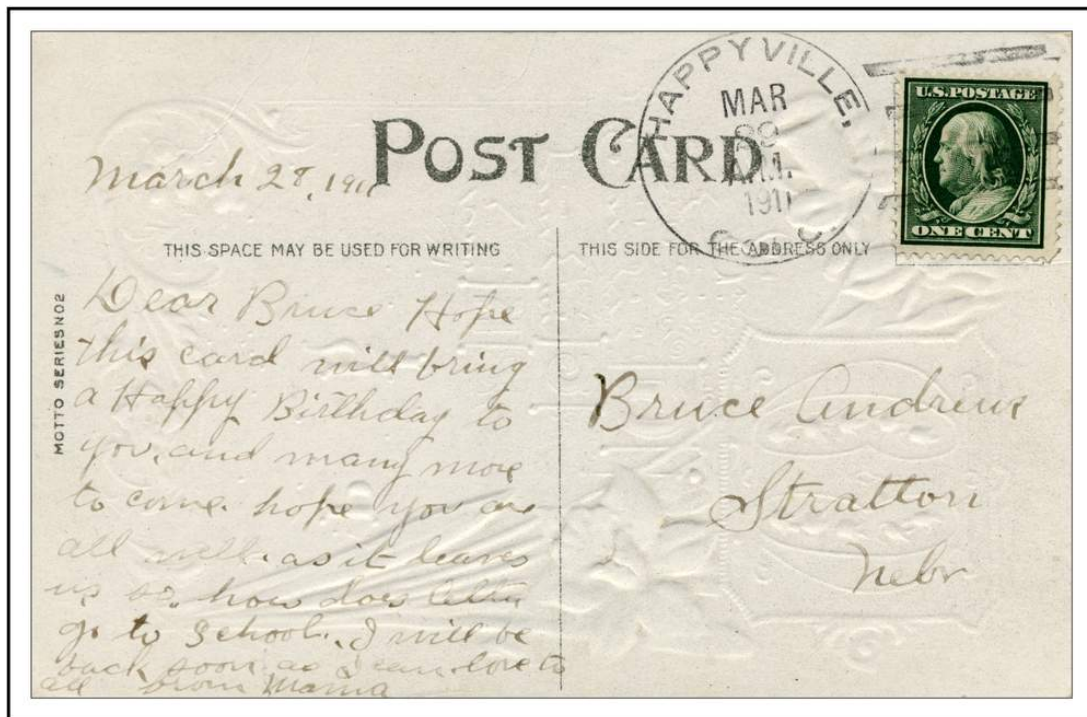 HAPPYVILLE,
MAR
29
A.M.
1911
COLO.
U.S. POSTAGE
ONE CENT
POST CARD
March 28, 1911
THIS SPACE MAY BE USED FOR WRITING
THIS SIDE FOR THE ADDRESS ONLY
MOTTO SERIES NO2
Dear Bruce Hope
this card will bring
a Happy Birthday to
you, and many more
to come. hope you are
all well. as it leaves
us so, how does
go to School. I will be
back soon as I can love to
all from Mama
Bruce Andrews
Stratton
Nebr